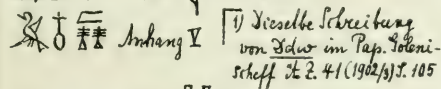 Anhang V
1) Dieselbe Schreibung
von Ddw im Pap. Goleni-
scheff ÄZ. 41 (1902/3) S. 105